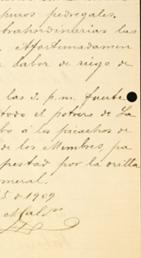 puros pedregales.
trahordinarias las
Afortunadamen
labor de riego de
las 2. p. m. fuerte
todo el potrero de La
bo á los picachos de
de los Membres, pa
pestad por la orilla
meral.
5 de 1909